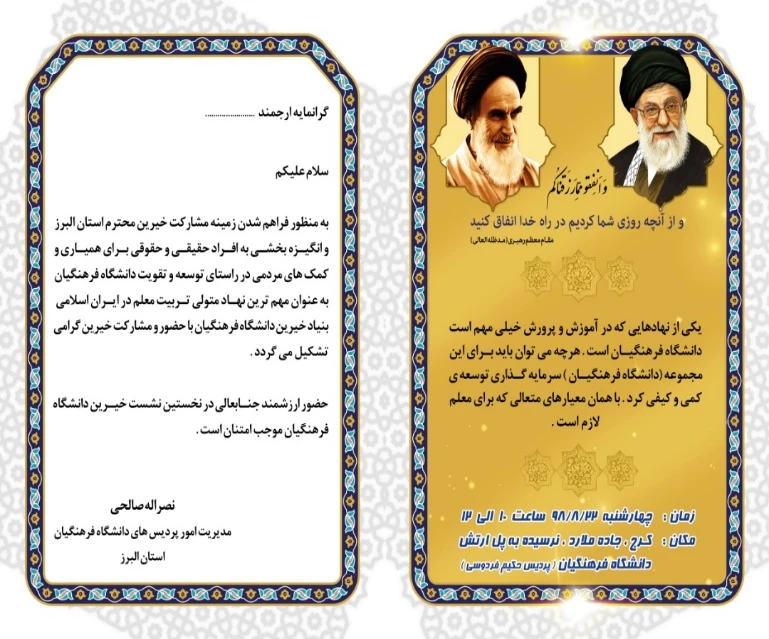 وَأَنفِقُوا مِمَّا رَزَقْنَاكُم
و از آنچه روزی شما کردیم در راه خدا انفاق کنید
مقام معظم رهبری (مدظله العالی)
یکی از نهادهایی که در آموزش و پرورش خیلی مهم است
دانشگاه فرهنگیان است . هرچه می توان باید برای این
مجموعه (دانشگاه فرهنگیان ) سرمایه گذاری توسعه ی
کمی و کیفی کرد . با همان معیارهای متعالی که برای معلم
لازم است .
زمان : چهارشنبه ۹۸/۸/۲۲ ساعت ۱۰ الی ۱۲
مکان : کرج ، جاده ملارد ، نرسیده به پل ارتش
دانشگاه فرهنگیان ( پردیس حکیم فردوسی )
گرانمایه ارجمند ........................
سلام علیکم
به منظور فراهم شدن زمینه مشارکت خیرین محترم استان البرز
و انگیزه بخشی به افراد حقیقی و حقوقی برای همیاری و
کمک های مردمی در راستای توسعه و تقویت دانشگاه فرهنگیان
به عنوان مهم ترین نهاد متولی تربیت معلم در ایران اسلامی
بنیاد خیرین دانشگاه فرهنگیان با حضور و مشارکت خیرین گرامی
تشکیل می گردد .
حضور ارزشمند جنابعالی در نخستین نشست خیرین دانشگاه
فرهنگیان موجب امتنان است .
نصراله صالحی
مدیریت امور پردیس های دانشگاه فرهنگیان
استان البرز